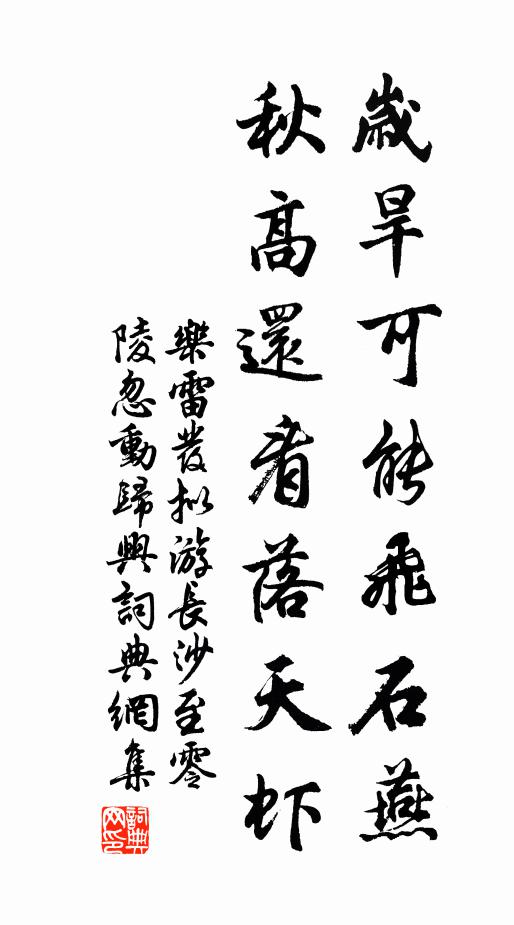 歲旱可能飛石燕
秋高還看落天虾
樂雷發拟游長沙至零
陵忽動歸興詞典網集
詞典
网印